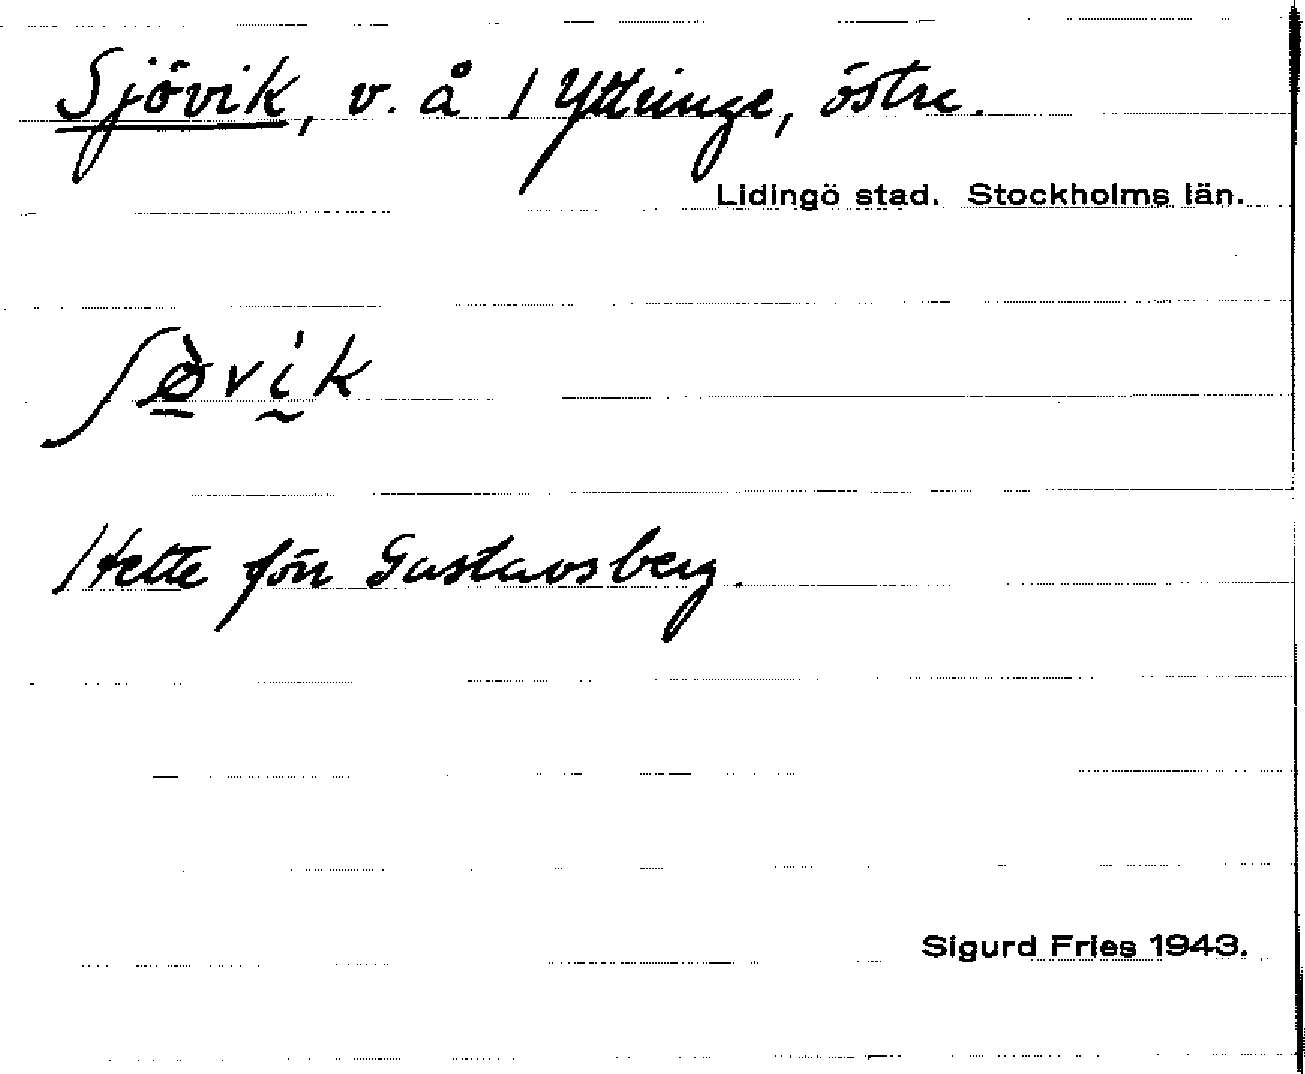 Sjövik, v. å 1 Yttringe, östre.
Lidingö stad. Stockholms län.
ʃø̀vik
Hette förr Gustavsberg.
Sigurd Fries 1943.